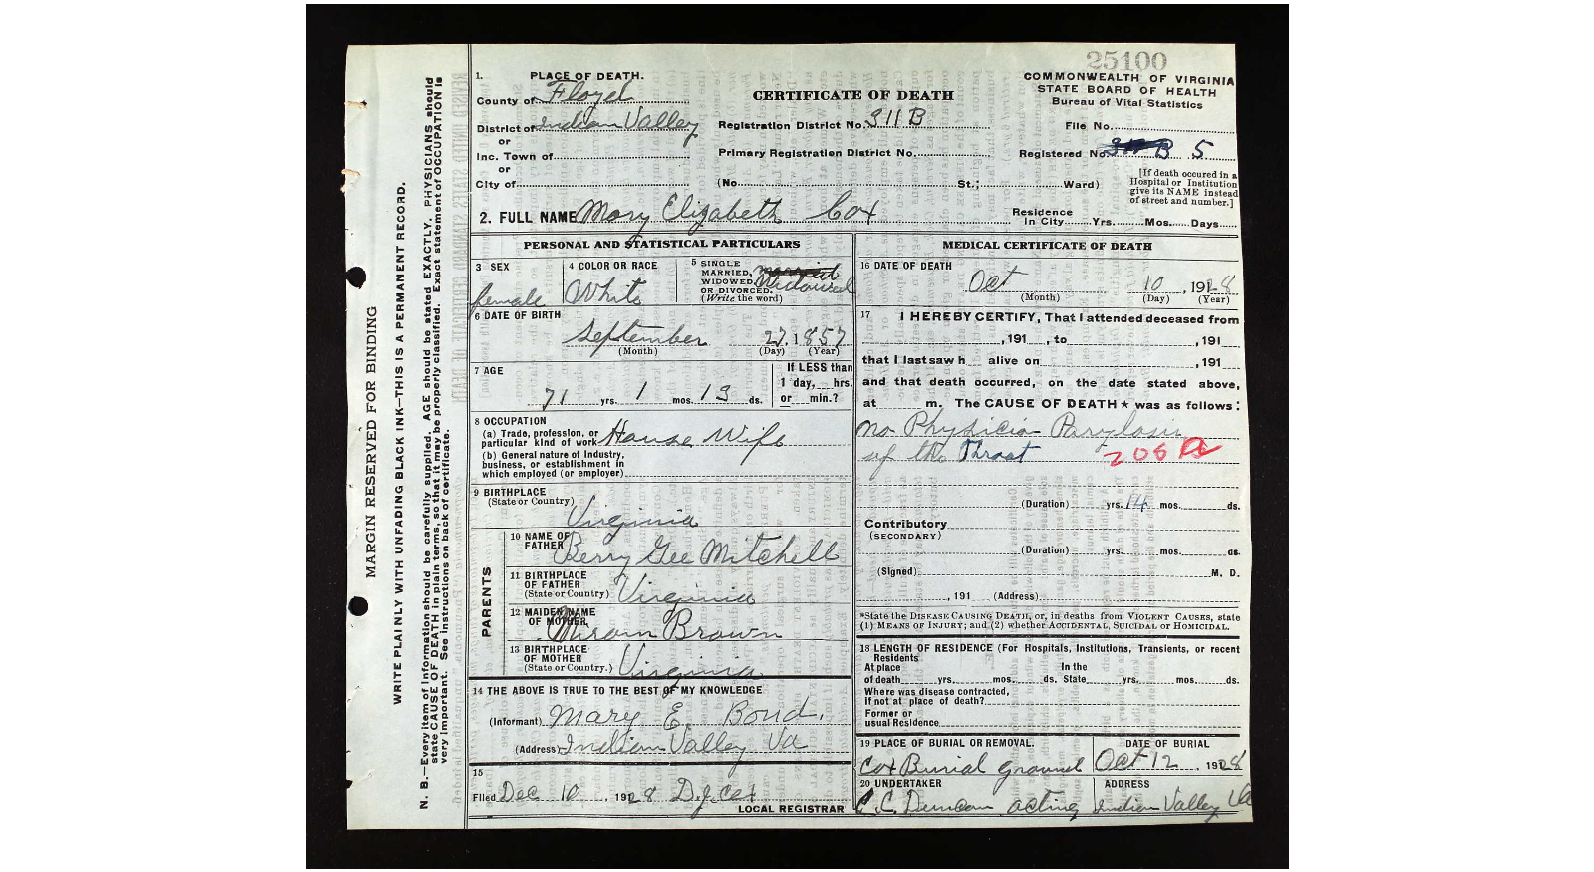 25100
COMMONWEALTH OF VIRGINIA
STATE BOARD OF HEALTH
Bureau of Vital Statistics
CERTIFICATE OF DEATH
1. PLACE OF DEATH.
County of Floyd
District of Indian Valley
or
Inc. Town of
or
City of
Registration District No. 311B
Primary Registration District No.
(No. St.; Ward)
File No.
Registered No. 5
[If death occured in a
Hospital or Institution
give its NAME instead
of street and number.]
2. FULL NAME Mary Elizabeth Cox
Residence
In City Yrs. Mos. Days
PERSONAL AND STATISTICAL PARTICULARS
3 SEX
female
4 COLOR OR RACE
White
5 SINGLE
MARRIED, married
WIDOWED, Widowed
OR DIVORCED.
(Write the word)
6 DATE OF BIRTH
September 27, 1857
(Month) (Day) (Year)
7 AGE
71 yrs. 1 mos. 13 ds.
If LESS than
1 day, hrs.
or min.?
8 OCCUPATION
(a) Trade, profession, or
particular kind of work House Wife
(b) General nature of Industry,
business, or establishment in
which employed (or employer)
9 BIRTHPLACE
(State or Country)
Virginia
PARENTS
10 NAME OF
FATHER
Berry Gee Mitchell
11 BIRTHPLACE
OF FATHER
(State or Country) Virginia
12 MAIDEN NAME
OF MOTHER
Brown
13 BIRTHPLACE
OF MOTHER
(State or Country.) Virginia
14 THE ABOVE IS TRUE TO THE BEST OF MY KNOWLEDGE
(Informant) Mary E. Bond.
(Address) Indian Valley Va
15
Filed Dec 10, 1928 D.J. Cox
LOCAL REGISTRAR
MEDICAL CERTIFICATE OF DEATH
16 DATE OF DEATH
Oct 10, 1928
(Month) (Day) (Year)
17 I HEREBY CERTIFY, That I attended deceased from
, 191 , to , 191
that I last saw h alive on , 191
and that death occurred, on the date stated above,
at m. The CAUSE OF DEATH * was as follows:
no Physician Parylasis
of the Throat 205
(Duration) yrs. 14 mos. ds.
Contributory
(SECONDARY)
(Duration) yrs. mos. ds.
(Signed) M. D.
, 191 (Address)
*State the DISEASE CAUSING DEATH, or, in deaths from VIOLENT CAUSES, state
(1) MEANS OF INJURY; and (2) whether ACCIDENTAL, SUICIDAL OR HOMICIDAL.
18 LENGTH OF RESIDENCE (For Hospitals, Institutions, Transients, or recent
Residents
At place In the
of death yrs. mos. ds. State yrs. mos. ds.
Where was disease contracted,
if not at place of death?
Former or
usual Residence
19 PLACE OF BURIAL OR REMOVAL.
Cox Burial ground
DATE OF BURIAL
Oct 12, 1928
20 UNDERTAKER
C.C. Duncan acting
ADDRESS
Indian Valley Va
MARGIN RESERVED FOR BINDING
WRITE PLAINLY WITH UNFADING BLACK INK—THIS IS A PERMANENT RECORD.
N. B.—Every item of information should be carefully supplied. AGE should be stated EXACTLY. PHYSICIANS should
state CAUSE OF DEATH in plain terms, so that it may be properly classified. Exact statement of OCCUPATION is
very important. See instructions on back of certificate.